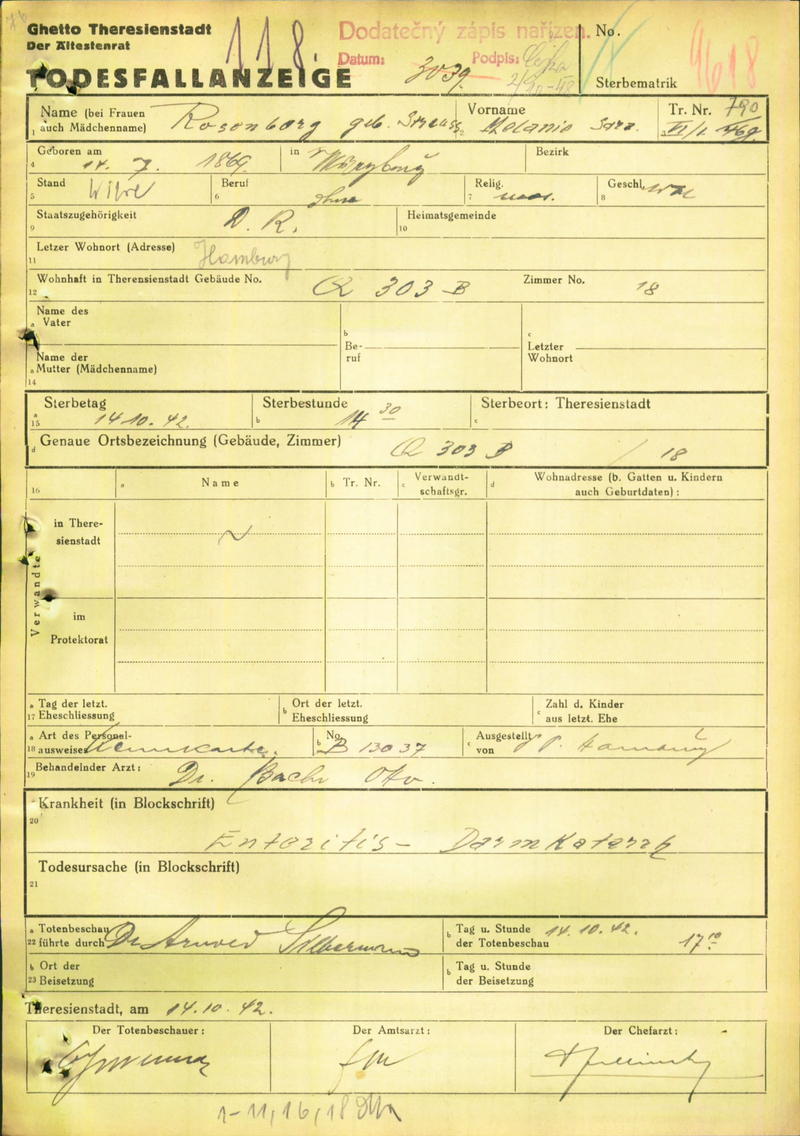 Ghetto Theresienstadt
Der Ältestenrat
118
Dodatečný zápis nařízen.
Datum: Podpis:
No.
TODESFALLANZEIGE
3039
Sterbematrik
9618
Name (bei Frauen auch Mädchenname) Rosenberg geb.
Vorname Melanie Sara
Tr. Nr. 790
1 2 3
Geboren am 14. 7. 1869
in
Bezirk
4
Stand Witwe
Beruf ohne
Relig. mos.
Geschl.
5 6 7 8
Staatszugehörigkeit D. R.
Heimatsgemeinde
9 10
Letzer Wohnort (Adresse) Hamburg
11
Wohnhaft in Therensienstadt Gebäude No. Q 303 B
Zimmer No. 18
12
Name des
a Vater
b Be-
ruf
c Letzter
Wohnort
Name der
a Mutter (Mädchenname)
14
a Sterbetag 14 10. 42.
b Sterbestunde 14 30
c Sterbeort: Theresienstadt
15
d Genaue Ortsbezeichnung (Gebäude, Zimmer) Q 303 B / 18
16
a Name
b Tr. Nr.
c Verwandt-
schaftsgr.
d Wohnadresse (b. Gatten u. Kindern
auch Geburtdaten):
Verwandte
in There-
sienstadt
im
Protektorat
a Tag der letzt.
17 Eheschliessung
b Ort der letzt.
Eheschliessung
c Zahl d. Kinder
aus letzt. Ehe
a Art des Personal-
18 ausweises Kennkarte.
b No. B 13037
c Ausgestellt
von Hamburg
19 Behandelnder Arzt: Dr. Otto.
Krankheit (in Blockschrift)
20
Enteritis - Darmkatarrh
Todesursache (in Blockschrift)
21
a Totenbeschau
22 führte durch Dr Arnold Silbermann
b Tag u. Stunde
der Totenbeschau 14. 10. 42. 17 10
b Ort der
23 Beisetzung
b Tag u. Stunde
der Beisetzung
Theresienstadt, am 14.10. 42.
Der Totenbeschauer:
Der Amtsarzt:
Der Chefarzt:
1-11, 16, 18